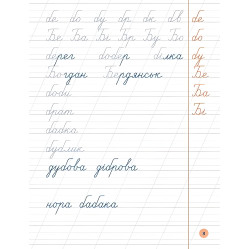 бе бо бу бр бк бв бе
Бе Ба Бі Бр Бу Бо бо
берег бобер білка бу
Богдан Бердянськ Бе
боби Ба
брат Бі
бабка
бублик
дубова діброва
нора бабака